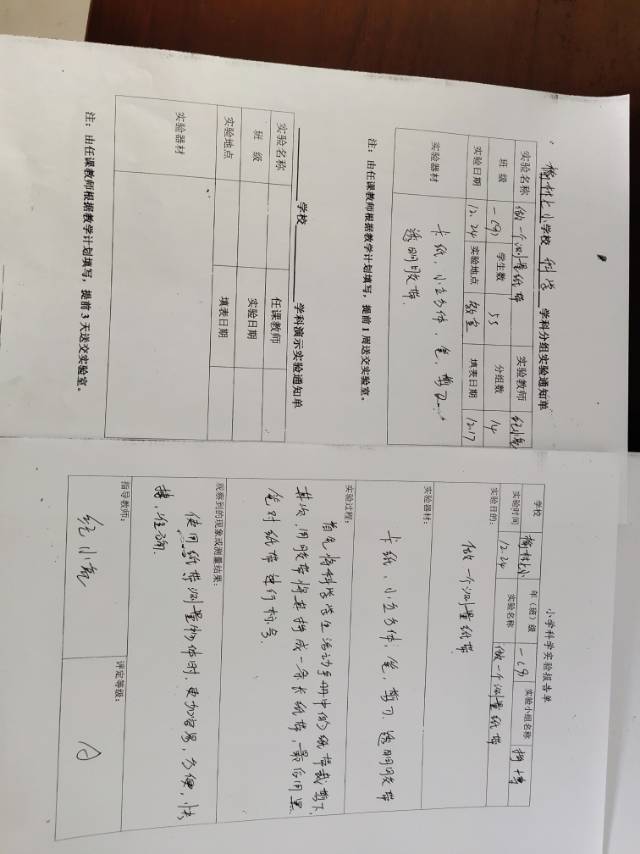 榆林七小学校 科学 学科分组实验通知单
实验名称 做一个测量纸带 实验教师 纪小宛
班 级 一(9) 学生数 55 分组数 14
实验日期 12.24 实验地点 教室 填表日期 12.17
实验器材 卡纸、小立方体、笔、剪刀、
透明胶带.
注：由任课教师根据教学计划填写，提前 1 周送交实验室。
学校 学科演示实验通知单
实验名称 任课教师
班 级 实验日期
实验地点 填表日期
实验器材
注：由任课教师根据教学计划填写，提前 3 天送交实验室。
小学科学实验报告单
学校 年（班）级 一(9) 实验小组名称
实验时间 12.24 实验名称 做一个测量纸带
实验目的：
做一个测量纸带
实验器材：
卡纸、小立方体、笔、剪刀、透明胶带
实验过程：
首先将科学学生活动手册中的纸带裁剪下，
其次，用胶带将其拼成一条长纸带，最后用黑
笔对纸带进行标号.
观察到的现象或测量结果：
使用纸带测量物体时，更加容易，方便，快
捷，准确.
指导教师：
评定等级：
A